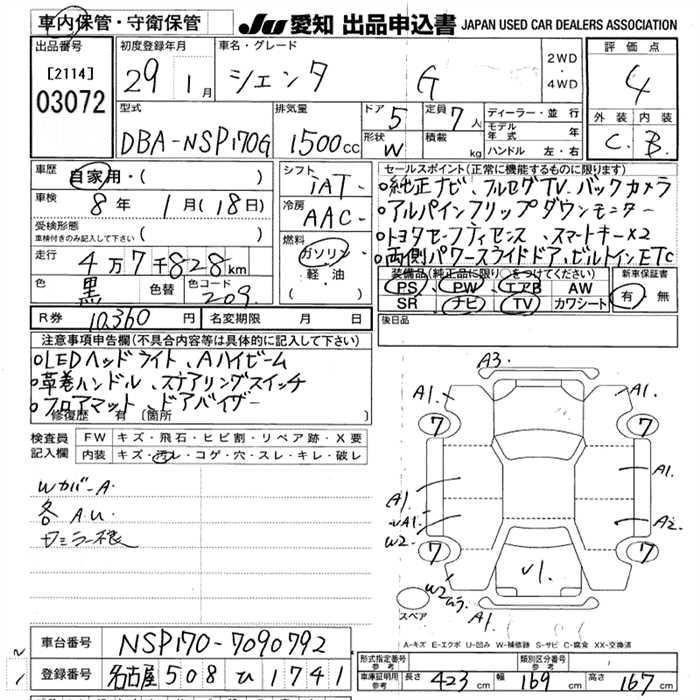 車内保管・守衛保管 JU 愛知 出品申込書 JAPAN USED CAR DEALERS ASSOCIATION
出品番号 初度登録年月 車名・グレード 評価点
[2114] 29年 1月 シエンタ G 2WD・4WD 4
03072 外装 内装
型式 排気量 ドア 5 定員 7人 ディーラー・並行 C. B.
DBA-NSP170G 1500cc 形状 W 積載 kg モデル年式 年
ハンドル 左・右
車歴 自家用・( )
シフト iAT-
セールスポイント(正常に機能するものに限ります)
車検 8年 1月(18日)
冷房 AAC-
・純正ナビ、フルセグTV、バックカメラ
・アルパインフリップダウンモニター
受検形態 車検付きのみ記入して下さい ・( )
燃料 ガソリン・軽・油・( )
・トヨタセーフティセンス、スマートキー×2
・両側パワースライドドア、ビルトインETC
走行 4万7千828km
装備品(純正品に限り)をつけてください 新車保証書
色 黒 色替 色コード 209.
PS PW エアB AW 有・無
SR ナビ TV カワシート
R券 10,360円 名変期限 月 日
後日品
注意事項申告欄(不具合内容等は具体的に記入して下さい)
・LEDヘッドライト、Aハイビーム
・革巻ハンドル、ステアリングスイッチ
・フロアマット、ドアバイザー
修復歴 有 [箇所 ]
検査員記入欄 FW キズ・飛石・ヒビ割・リペア跡・X要
内装 キズ・汚レ・コゲ・穴・スレ・キレ・破レ
Wカバー A.
各 A.U.
A3.
A1. A1.
7 7
A1. A1.
√A1. A2.
W2
7 7
√1.
W2 ムラ. A1.
スペア
A-キズ E-エクボ U-凹み W-補修跡 S-サビ C-腐食 XX-交換済
車台番号 NSP170-7090792
登録番号 名古屋 508 ひ 1741
形式指定番号 参考 類別区分番号 参考
車庫証明用 参考 長さ 423cm 幅 169cm 高さ 167cm